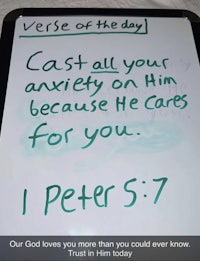 Verse of the day
Cast all your
anxiety on Him
because He cares
for you.
1 Peter 5:7
Our God loves you more than you could ever know.
Trust in Him today